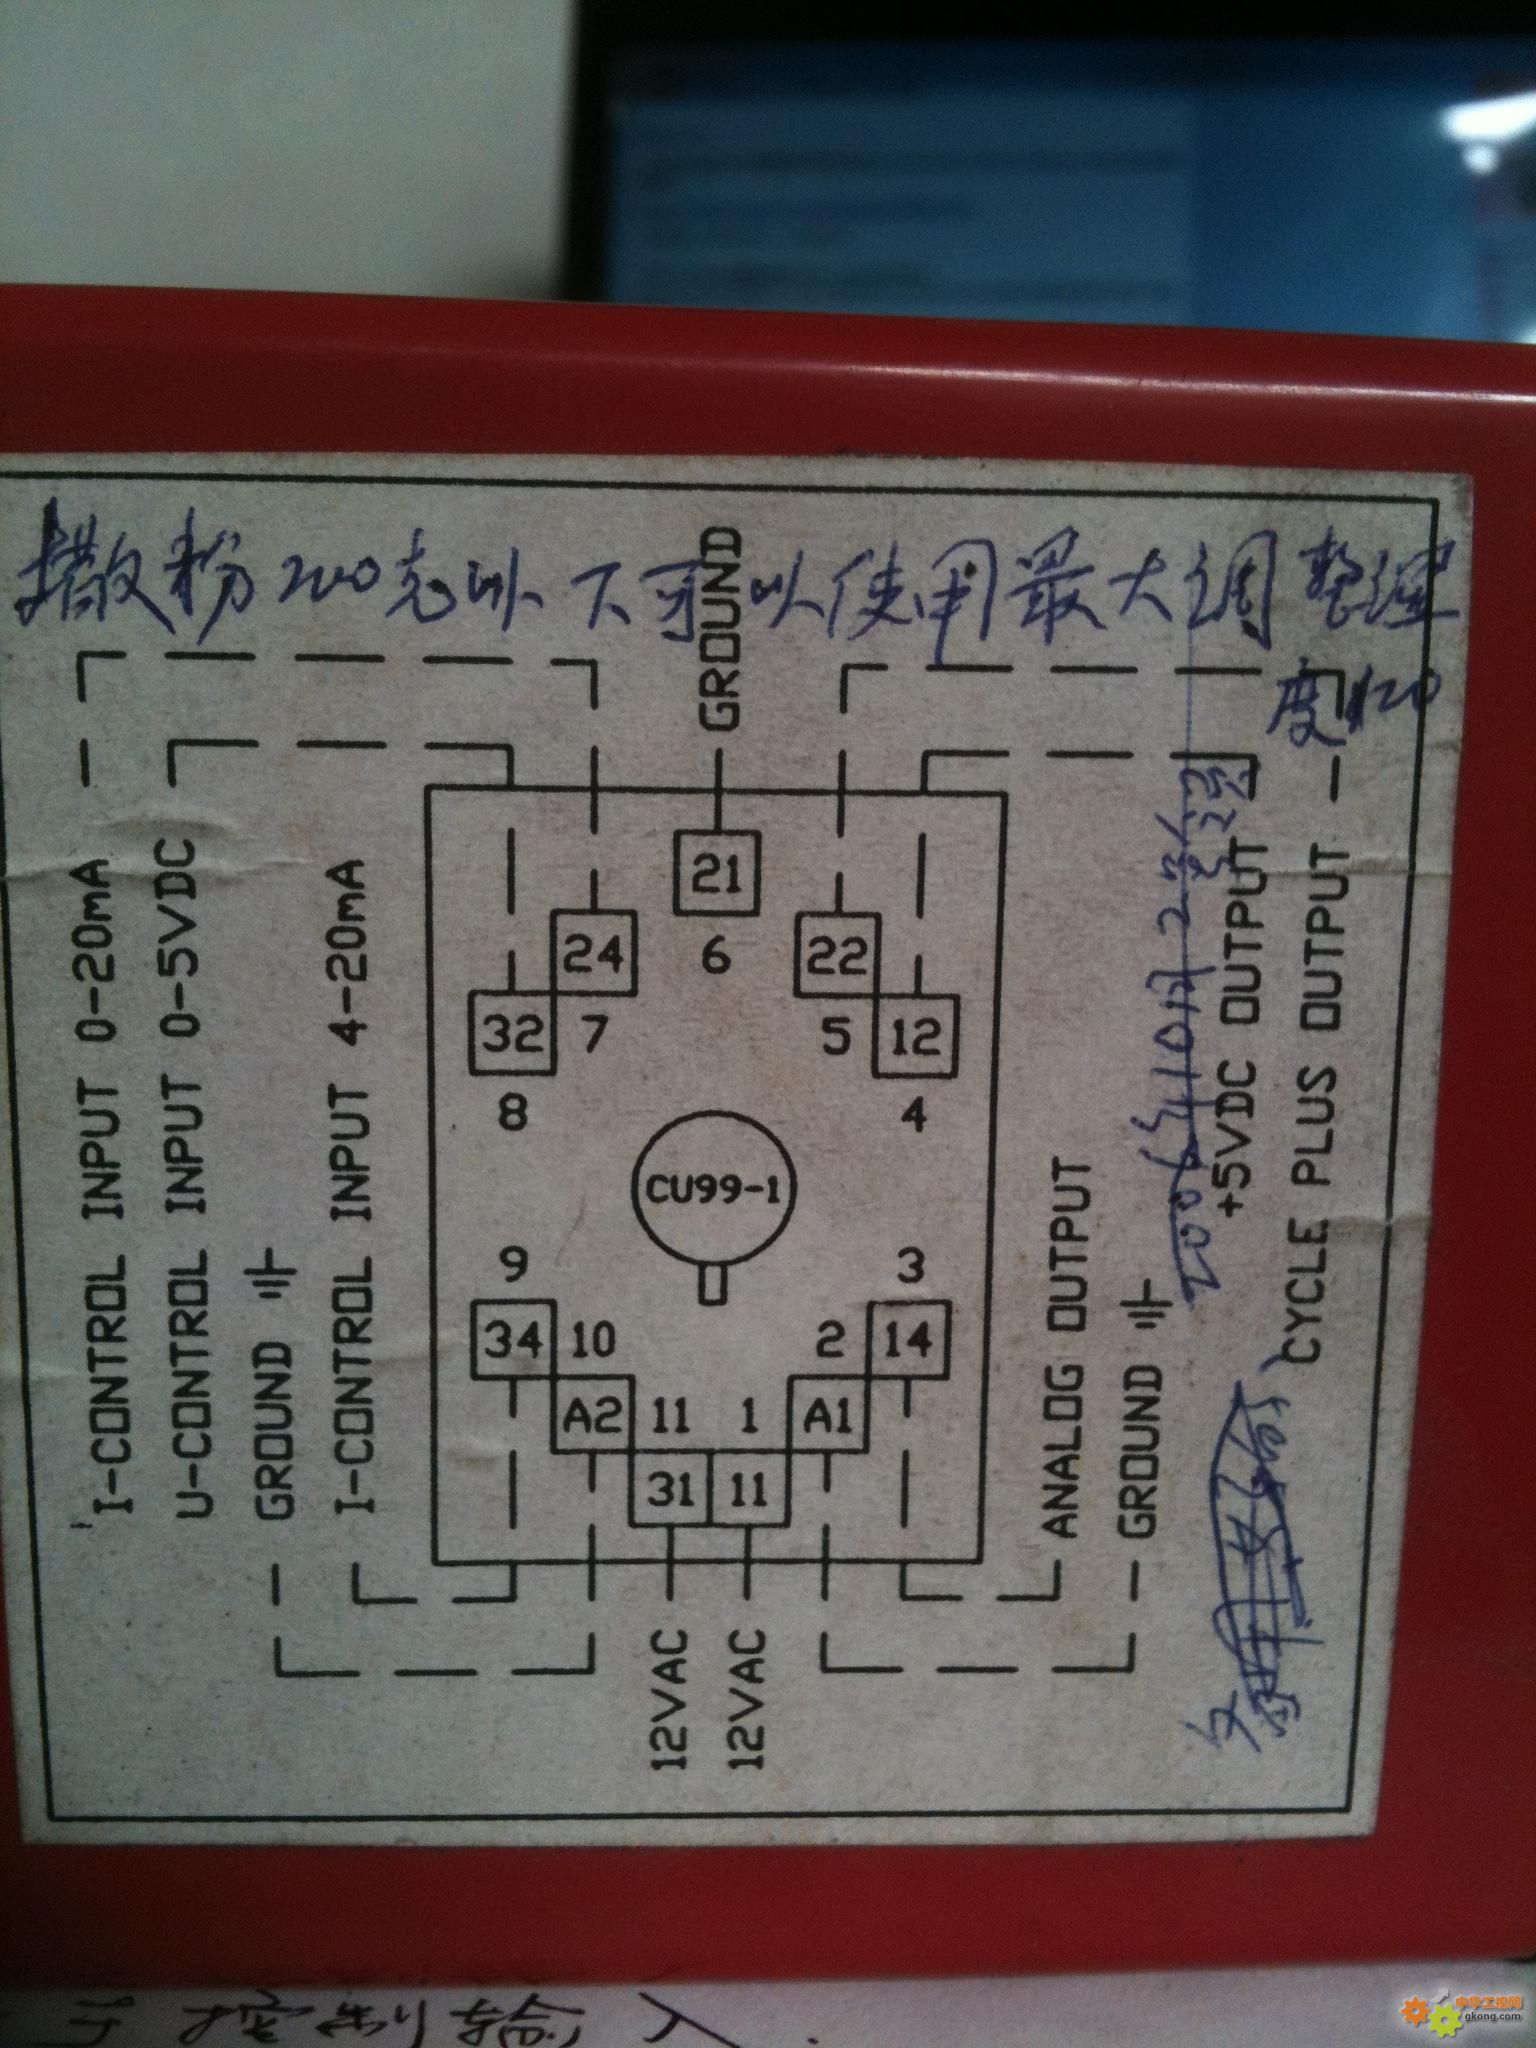 撒粉200克以下可以使用最大调整理
度120
I-CONTROL INPUT 0-20mA
U-CONTROL INPUT 0-5VDC
GROUND
I-CONTROL INPUT 4-20mA
GROUND
21
24
6
22
32
7
5
12
8
4
CU99-1
9
3
34
10
2
14
A2
11
1
A1
31
11
12VAC
12VAC
ANALOG OUTPUT
GROUND
+5VDC OUTPUT
CYCLE PLUS OUTPUT
控制输入.
中华工控网
gkong.com